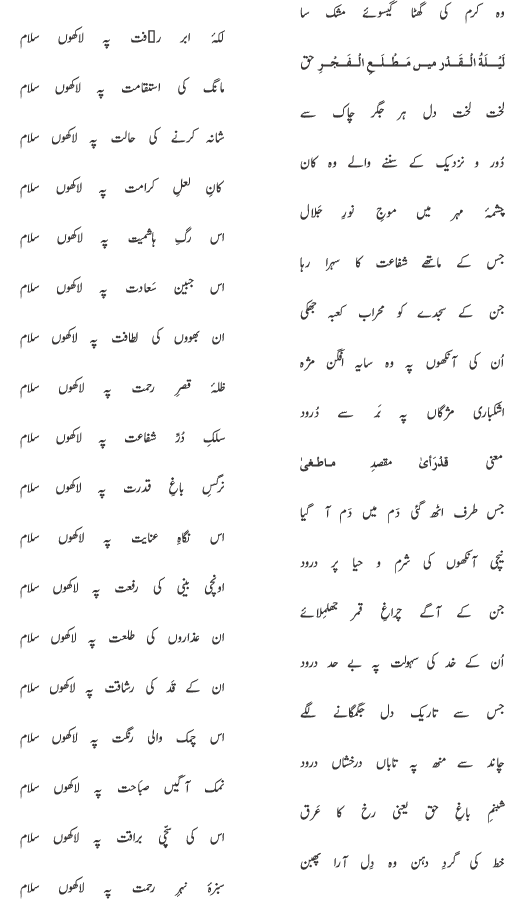 وہ کرم کی گھٹا گیسوئے مشک سا
لکۂ ابر رأفت پہ لاکھوں سلام
لَیْلَۃُ الْقَدْر میں مَطْلَعِ الْفَجْرِ حق
مانگ کی استقامت پہ لاکھوں سلام
لخت لخت دل ہر جگر چاک سے
شانہ کرنے کی حالت پہ لاکھوں سلام
دُور و نزدیک کے سننے والے وہ کان
کانِ لعلِ کرامت پہ لاکھوں سلام
چشمۂ مہر میں موجِ نورِ جَلال
اس رگِ ہاشمیت پہ لاکھوں سلام
جس کے ماتھے شفاعت کا سہرا رہا
اس جبین سَعادت پہ لاکھوں سلام
جن کے سجدے کو محرابِ کعبہ جھکی
ان بھووں کی لطافت پہ لاکھوں سلام
اُن کی آنکھوں پہ وہ سایہ افگن مژہ
ظلۂ قصرِ رحمت پہ لاکھوں سلام
اشکباری مژگاں پہ بَر سے دُرود
سلکِ دُرِّ شفاعت پہ لاکھوں سلام
معنی قَدْرَاٰی مقصدِ مَاطَغٰی
نرگسِ باغِ قدرت پہ لاکھوں سلام
جس طرف اٹھ گئی دَم میں دَم آ گیا
اس نگاہِ عنایت پہ لاکھوں سلام
نیچی آنکھوں کی شرم و حیا پر درود
اونچی بینی کی رفعت پہ لاکھوں سلام
جن کے آگے چراغِ قمر جھلملائے
ان عذاروں کی طلعت پہ لاکھوں سلام
اُن کے خد کی سہولت پہ بے حد درود
ان کے قَد کی رشاقت پہ لاکھوں سلام
جس سے تاریک دل جگمگانے لگے
اس چمک والی رنگت پہ لاکھوں سلام
چاند سے منھ پہ تاباں درخشاں درود
نمک آگیں صباحت پہ لاکھوں سلام
شبنمِ باغِ حق یعنی رخ کا عَرق
اس کی سچّی براقت پہ لاکھوں سلام
خط کی گردِ دہن وہ دِل آرا پھبن
سبزۂ نہرِ رحمت پہ لاکھوں سلام